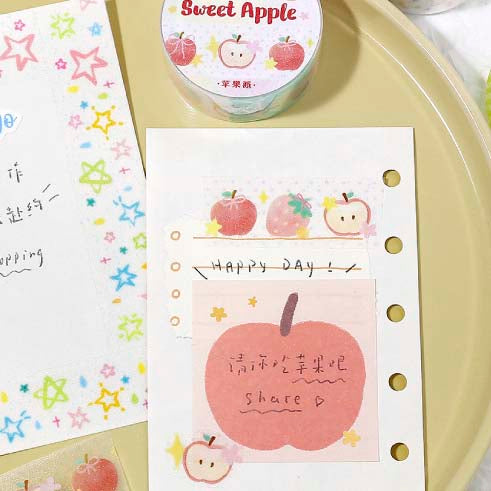 Sweet Apple
苹果派
作
赴約
opping
HAPPY DAY!
請你吃苹果呢
share